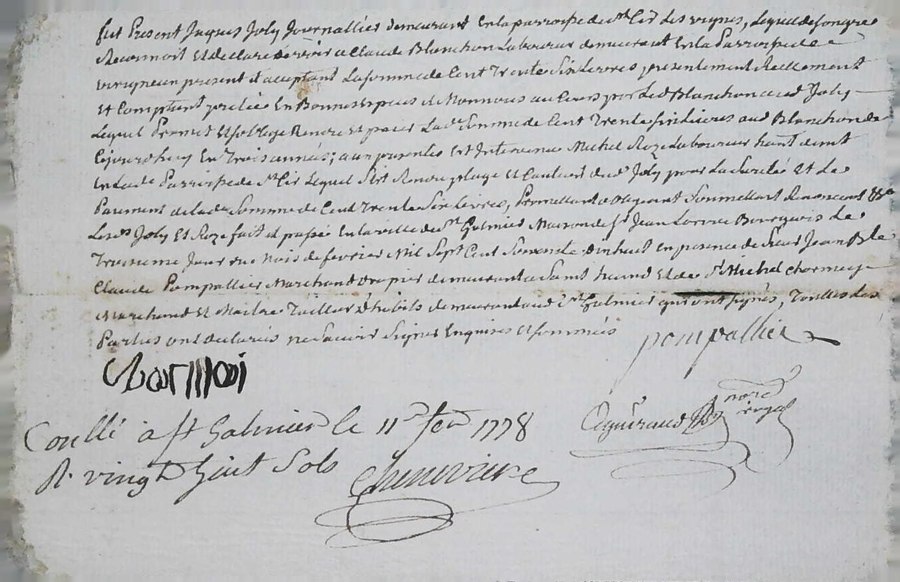 fut Present Jaques Joly Journallier demeurant En la parroisse de St Cir Les vignes, Lequel de son gré
Reconnoit Et declare devoir a Claude Blanchon Laboureur demeurant En La Parroisse de
present et aceptant La somme de Cent Trente Six Livres presentement Reellement
Et Comptant En Bonnes Especes de Monnoies au Cours par Led Blanchon aud Joly
Lequel Promet Et s'oblige Rendre Et paier Lad. Somme de Cent Trente Six Livres aud Blanchon de
Cejourdhuy En Trois années; aux presentes Est Intervenu Michel Roze Laboureur habitant
En lade Parroisse de St Cir Lequel S'est Rendu plage Et Caution dud Joly pour La Sureté Et Le
Paiement de lade Somme de Cent Trente Six Livres, Promettant obligeant Soumettant Renoncant &c
Lesd Joly Et Roze fait et passé En la ville de St Galmier Maison de Sr Jean Bourgeois Le
Jour du Mois de fevrier Mil Sept Cent Soixante Dixhuit En presence de Sieur Jean
Claude Pompallier Marchand Drapier demeurant a Saint Et de Sr Michel
Marchand Et Maitre Tailleur D'habits demeurant aud St Galmier qui ont signés, Touttes Les
Parties ont declarés ne Scavoir Signer Enquises Et sommés
pompallier
Charmoi
Conllé à St Galmier le 11e fev 1778
R. vingt huit Sols
Cheneviere